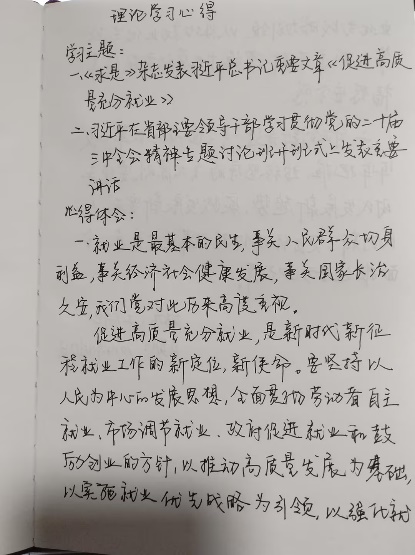 理论学习心得
学习主题:
一、《求是》杂志发表习近平总书记重要文章《促进高质
量充分就业》
二、习近平在省部级主要领导干部学习贯彻党的二十届
三中全会精神专题研讨班开班式上发表重要
讲话
心得体会:
一、就业是最基本的民生,事关人民群众切身
利益,事关经济社会健康发展,事关国家长治
久安,我们党对此历来高度重视。
促进高质量充分就业,是新时代新征
程就业工作的新定位,新使命。要坚持以
人民为中心的发展思想,全面贯彻劳动者自主
就业、市场调节就业、政府促进就业和鼓
励创业的方针,以推动高质量发展为基础,
以实施就业优先战略为引领,以强化就